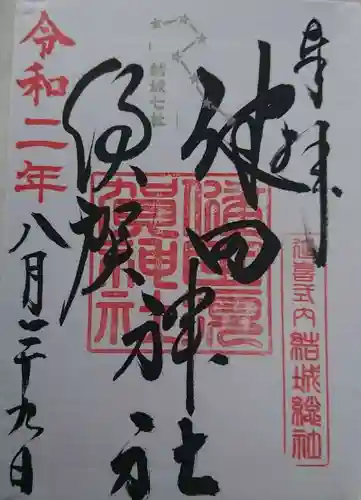 奉拝
健田
須賀
神社
令和二年
八月二十九日
結城七社
延喜式内 結城総社